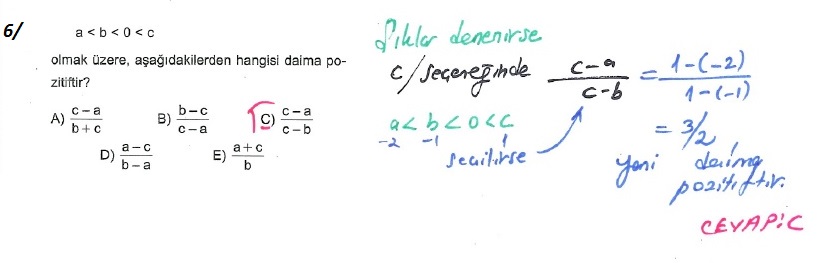 6/
a < b < 0 < c
olmak üzere, aşağıdakilerden hangisi daima po-
zitiftir?
A) c – a / b + c B) b – c / c – a C) c – a / c – b
D) a – c / b – a E) a + c / b
Şıklar denenirse
c/seçeneğinde c – a / c – b = 1 – (–2) / 1 – (–1)
a < b < 0 < c
-2 -1 1
seçilirse
= 3/2
yani daima
pozitiftir.
CEVAP: C